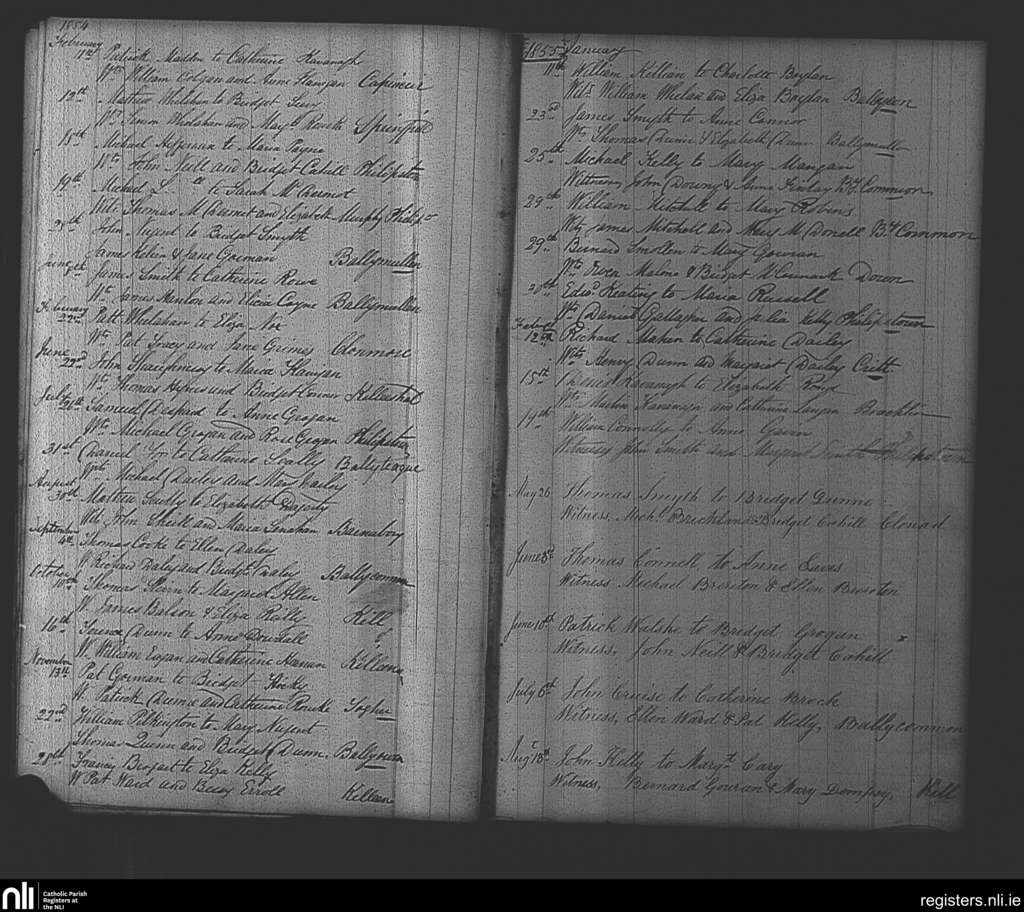 1854
February
11th Patrick Madden to Catherine Kavanagh
Wts William Colgan and Anne Flanagan
12th Mathew Whelahan to Bridget
Wts Simon Whelahan and
18th Michael Heffernan to Maria Payne
Wts John Neill and Bridget Cahill Philipstn
19th Michael to Sarah McDermot
Wits Thomas McDermot and Elizabeth Murphy Philipstn
25th John Nugent to Bridget Smyth
James Helien & Jane Gorman Ballymullen
James Smith to Catherine Rowe
Wts James Hanlon and Elicia Coyne Ballymullen
February
22nd Patt Whelahan to Eliza Noe
Wts Pat Tracy and Jane Grimes Clonmore
June
22nd John Shaughnessy to Maria Flanagan
Wts Thomas and Bridget Connor
July
26th Samuel Despard to Anne Grogan
Wts Michael Grogan and Rose Grogan Philipstn
31st to Catherine Scally Ballyteague
Wts Michael Dailey and Mary Dailey
August
30th Mathew Scully to Elizabeth
Wts John and Maria Lenahan Barnaboy
September
4th Thomas Cooke to Ellen Daley
W Richard Daley and Bridget Daley Ballycommon
October
10th Thomas to Margaret Allen
W. James Balson & Eliza Reilly Kill
16th Terence Dunn to Anne Dowdall
W. William Eagan and Catherine Killeen
November
13th Pat Gorman to Bridget
W. Patrick and Catherine Rourke
22nd William Pilkington to Mary Nugent
Thomas Quinn and Bridget Dunn
28th Francis to Eliza Kelly
W Pat Ward and Betsy Errott Killeen
1855 January
11th William Killian to Charlotte Boylan
Wits William Whelan and Eliza Boylan
23rd James Smyth to Anne Connor
Wts Thomas Dunn & Elizabeth Dunn Ballymullen
25th Michael Kelly to Mary Mangan
Witnesses John Downey & Anna Finlay By Common
29th William Mitchell to Mary Robins
Wts James Mitchell and Mary McDonell By Common
29th Bernard Smollen to Mary Gowran
Wts Malone & Bridget Down
28th Edwd Keating to Maria Russell
Wts Daniel Gallagher and Julia Kelly Philipstown
Februry
12th Richard Maher to Catherine Dailey
Wts Henry Dunn and Margaret Dailey
15th James Kavanagh to Elizabeth
Wts Martin Kavanagh and Catherine Bracklin
19th William Connolly to Anne Gavin
Witnesses John Smith and Margaret Smith Philipstown
May 26 Thomas Smyth to Bridget Dunne
Witness, Michl Brickland & Bridget Cahill Clonad
June 8th Thomas Connell to Anne Eaves
Witness Michael Brereton & Ellen Brereton
June 10th Patrick Walshe to Bridget Grogan
Witness, John Neill & Bridget Cahill
July 6th John Cruise to Catherine Brock
Witness, Ellen Ward & Pat Kelly, Ballycommon
Aug 18th John Kelly to Margt Cary
Witness, Bernard Gouran & Mary Dempsy, Kill
nli
Catholic Parish
Registers at
the NLI
registers.nli.ie